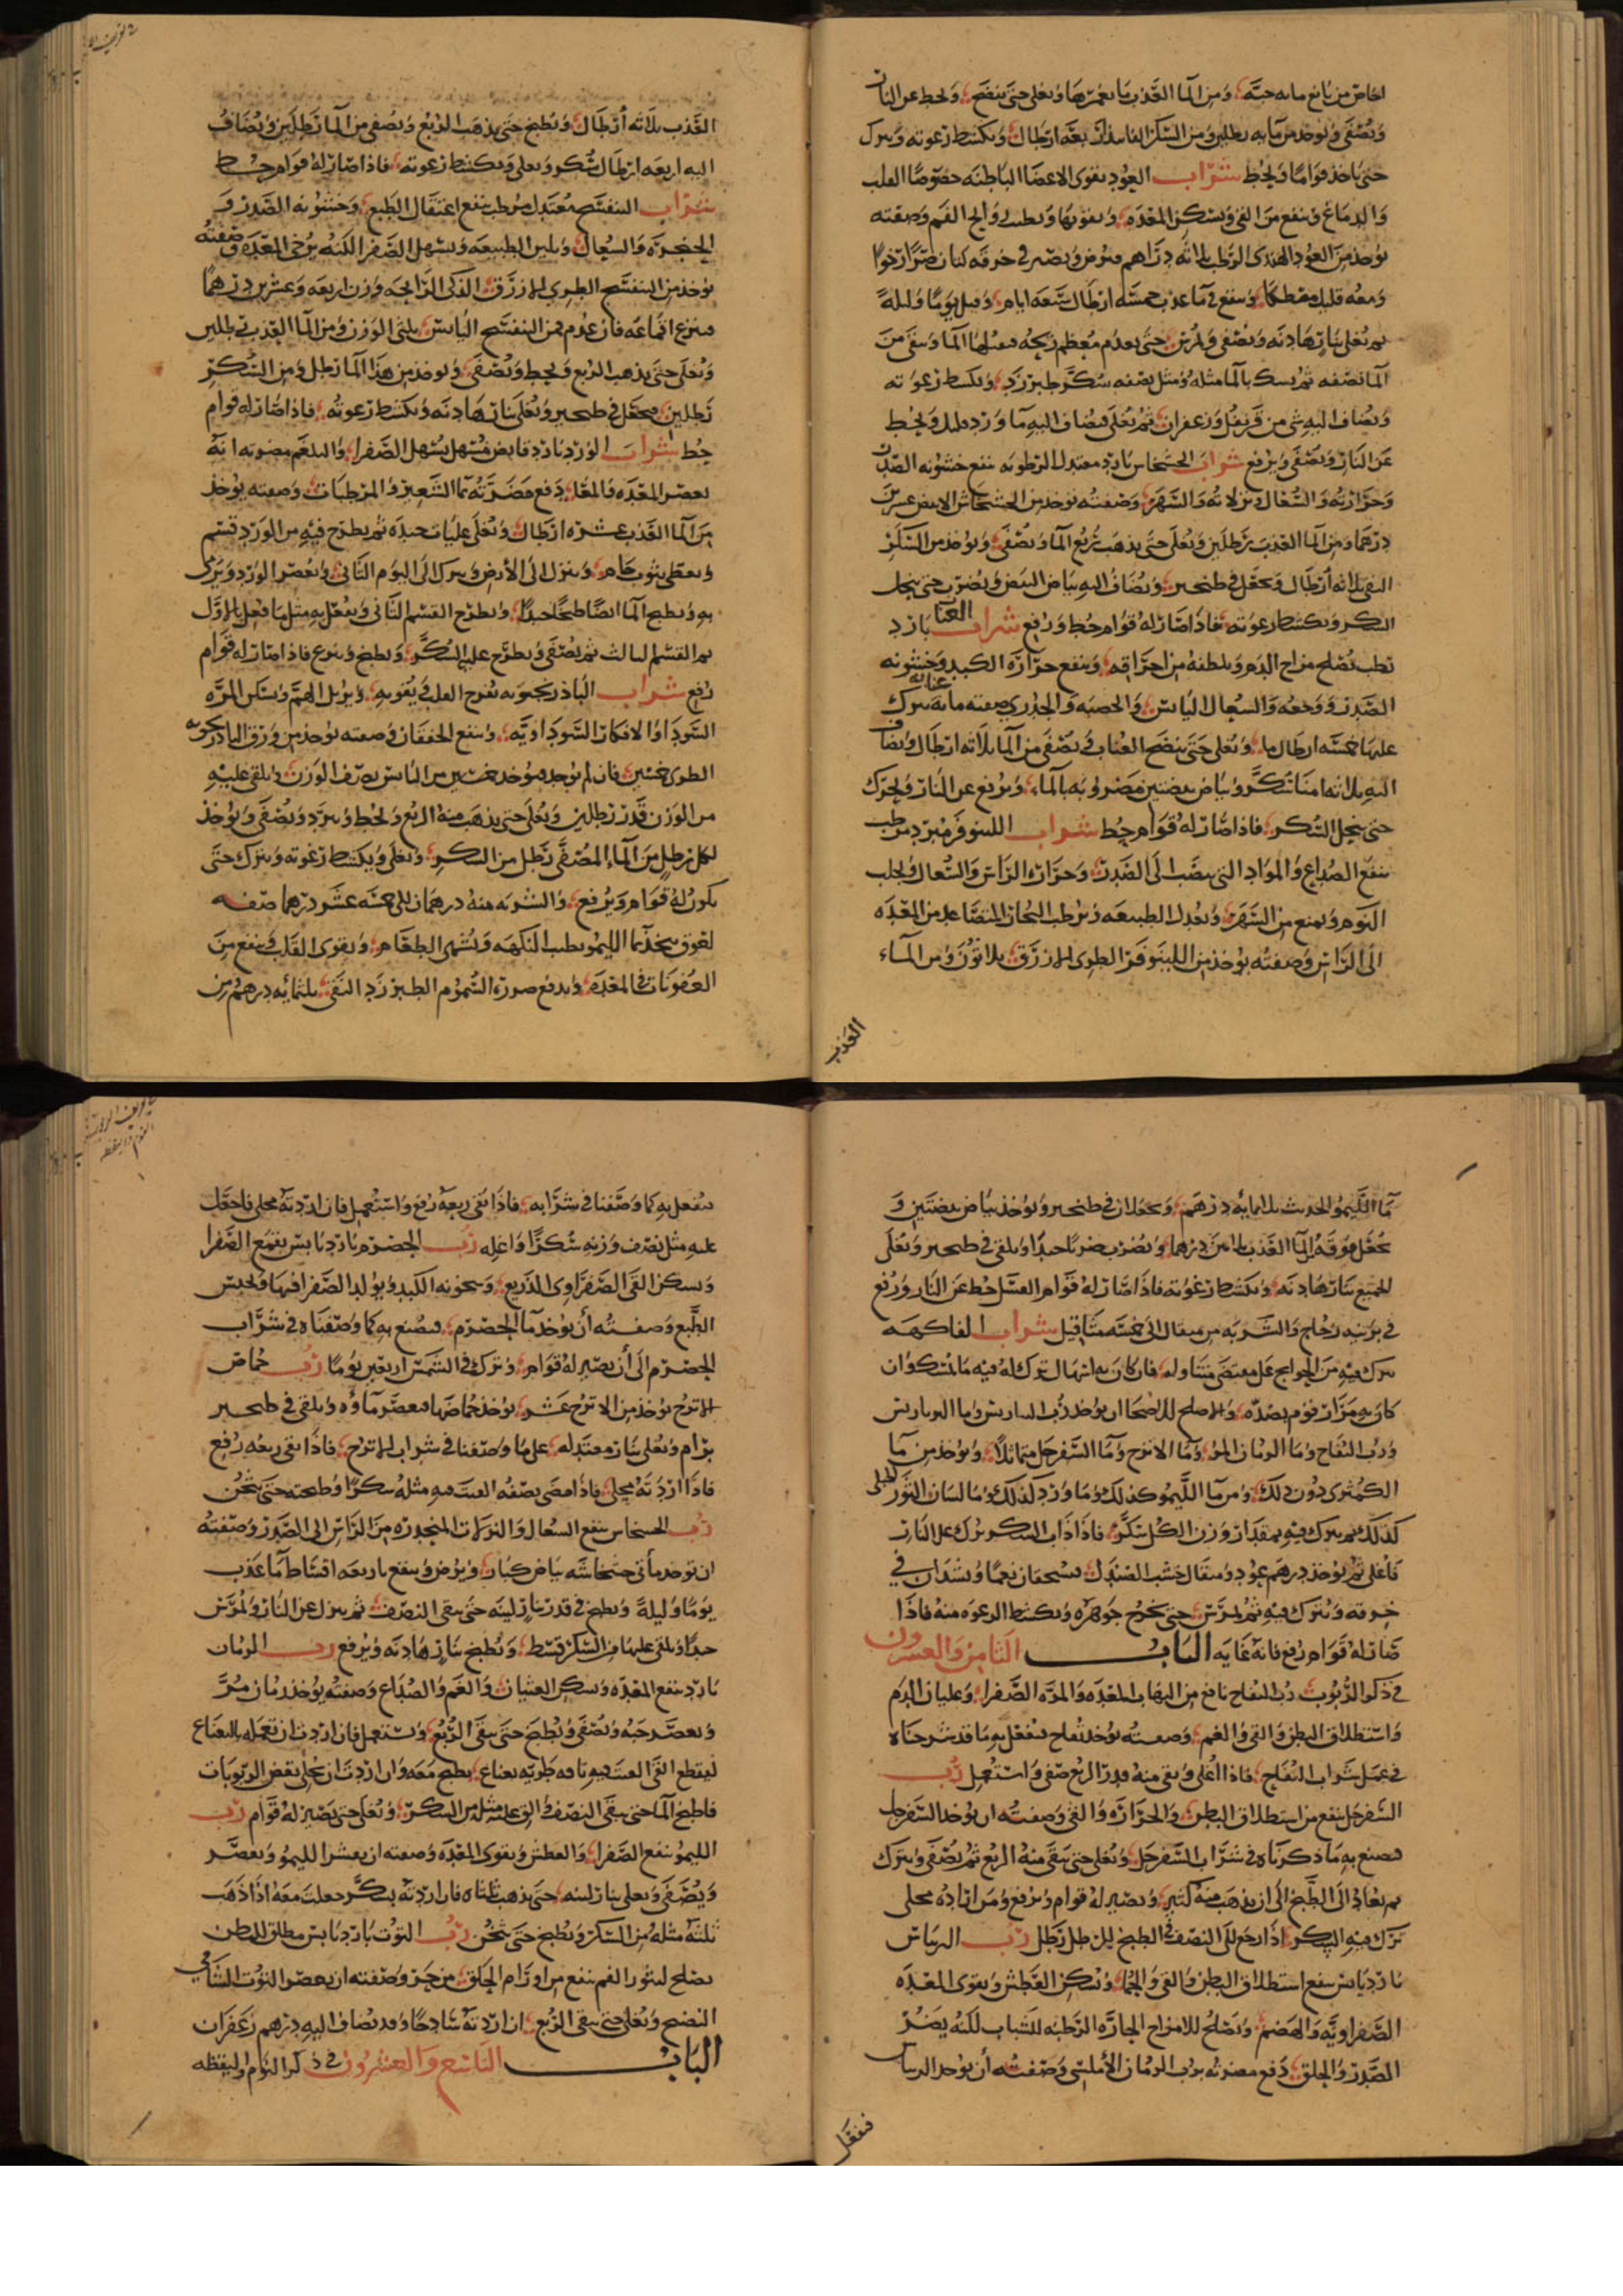 اجاص من بائع مائه حبه ومن الما العذب ما يغمرها ويغلى حتى ينضج ويحط عن النار
ويصفى ويوخذ من مايه رطلين ومن السكر الفايد اربعه ارطال ويكشط رغوته ويترك
حتى ياخذ قواما ويحط شراب العود يقوى الاعضا الباطنه خصوصا القلب
والدماغ وينفع من القى ويسكن المعده ويقويها ويطيب روايح الفم وصفته
يوخذ من العود الهندى الرطب ثلاثه دراهم فيرض ويصر فى خرقه كتان صرا رخوا
ومعه قليل مصطكا وينقع فى ما عذب خمسه ارطال سبعه ايام وقيل يوما وليلة
ثم يغلى بنار هادئه ويصفى ويمرس حتى يعدم معظم ريحه الما ويبقى من
الما نصفه ثم يمسك بالما مثله ومثل نصفه سكر طبرزد ويكشط رغوته
ويضاف اليه شى من قرنفل وزعفران ثم يغلى فيضاف اليه ما ورد قليل ويحط
عن النار ويصفى ويرفع شراب الخشخاش بارد معتدل الرطوبه ينفع خشونه الصدر
وحرارته والسعال ونزلاته والسهر وصفته يوخذ من الخشخاش الابيض عشرين
درهما ومن الما العذب رطلين ويغلى حتى يذهب ربع الما ويصفى ويوخذ من السكر
النقى ثلاثه ارطال ويجعل فى طنجير ويضاف اليه بياض البيض ويضرب حتى ينحل
السكر ويكشط رغوته فاذا صار له قوام حط ورفع شراب العناب بارد
رطب يصلح مزاج الدم ويلطفه من احتراقه وينفع حرارة الكبد وخشونه
الصدر ووجعه والسعال اليابس والحصبه والجدرى صفته مائه عنابه يترك
عليها خمسه ارطال ما ويغلى حتى ينضج العناب ويصفى من الما ثلاثه ارطال ويضاف
اليه ثلاثه امنا سكر وبياض بيضتين مضروبه بالماء ويرفع عن النار ويحرك
حتى ينحل السكر فاذا صار له قوام حط شراب اللينوفر مبرد مرطب
ينفع الصداع والمواد التى ينصب الى الصدر وحرارة الراس والسعال ويجلب
النوم ويمنع من السهر ويعدل الطبيعه ويرطب البخار المتصاعد من المعده
الى الراس وصفته يوخذ من اللينوفر الطرى الازرق ثلاثون ومن الماء
العذب
العذب ثلاثه أرطال ويطبخ حتى يذهب الربع ويصفى من الما رطلين ويضاف
اليه اربعه ارطال سكر ويغلى ويكشط رغوته فاذا صار له قوام حط
شراب البنفسج معتدل مرطب ينفع اعتقال الطبع وخشونه الصدر و
الحنجره والسعال ويلين الطبيعه ويسهل الصفرا لكنه يرخى المعده وصفته
يوخذ من البنفسج الطرى الازرق الذكى الرائحه وزن اربعه وعشرين درهما
فينزع اقماعه فان عدم فمن البنفسج اليابس بثلثى الوزن ومن الما العذب رطلين
ويغلى حتى يذهب الربع ويحط ويصفى ويوخذ من هذا الما رطل ومن السكر
رطلين فيجعل فى طنجير ويغلى بنار هادئه ويكشط رغوته فاذا صار له قوام
حط شراب الورد بارد قابض مسهل يسهل الصفرا والبلغم مضرته انه
يعصر المعده والمعا دفع مضرته بما الشعير والمرطبات وصفته يوخذ
من الما العذب عشره ارطال ويغلى غليات جيده ثم يطرح فيه من الورد قسم
ويغطى بثوب خام وينزل الى الأرض ويترك الى اليوم الثانى ويعصر الورد ويرى
به ويطبخ الما ايضا طبخا جيدا ويطرح القسم الثانى ويفعل به مثل ما فعل بالاول
ثم القسم الثالث ثم يصفى ويطرح عليه السكر ويطبخ وينزع فاذا صار له قوام
رفع شراب الباذرنجويه يفرح القلب ويقويه ويزيل الهم ويسكن المره
السودا والافكار السوداويه وينفع الخفقان وصفته يوخذ من ورق الباذرنجويه
الطرى خمسين فان لم يوجد فيوخذ خمسين من اليابس نصف الوزن ويلقى عليه
من الوزن قدر رطلين ويغلى حتى يذهب منه الربع ويحط ويبرد ويصفى ويوخذ
لكل رطل من الماء المصفى رطل من السكر ويغلى ويكشط رغوته ويترك حتى
يكون له قوام ويرفع والشربه منه درهمان الى خمسه عشر درهما صفه
لعوق يتخذ بما الليمو يطيب النكهه ويشهى الطعام ويقوى القلب وينفع من
العفونات فى المعده ويدفع ضرر السموم الطبرزد النقى ثلثمائه درهم من
ما الليمو الحديث ثلاثمائه درهم ويجعلان فى طنجير ويوخذ بياض بيضتين و
يجعل فوقه الما العذب ثلاثين درهما ويضرب ضربا جيدا ويلقى فى طنجير ويغلى
الجميع بنار هادئه ويكشط رغوته فاذا صار له قوام العسل حط عن النار ورفع
فى برنيه زجاج والشربه من مثقال الى خمسه مثاقيل شراب الفاكهه
يترك فيه من الحوايج على مقتضى متناوله فان كان به اسهال ترك له فيه ما يمسك وان
كان به مرار فقوم بضده والاصلح للاصحا ان يوخذ رب الريباس وما البرباريس
ورب التفاح وما الرمان المز وما الاترج وما السفرجل متماثلا ويوخذ من ما
الكمثرى دون ذلك ومن ما الليمو كذلك وما ورد كذلك وما لسان الثور الجبلى
كذلك ثم يترك فيه بمقدار وزن الكل سكر فاذا ذاب السكر يترك على النار
فاغلى ثم يوخذ درهم عود ومثقال خشب الصندل يسحقان نعما ويشدان فى
خرقه ويترك فيه ثم يمرس حتى يخرج جوهره ويكشط الرغوه منه فاذا
صار له قوام رفع فانه غايه الباب الثامن والعشرون
فى ذكر الربوب رب التفاح نافع من التهاب المعده والمره الصفرا وغليان الدم
واستطلاق البطن والقى والغم وصفته يوخذ تفاح يفعل به ما قد شرحناه
فى عمل شراب التفاح فاذا اغلى وبقى منه قدر الربع صفى واستعمل رب
السفرجل ينفع من استطلاق البطن والحراره والقى وصفته ان يوخذ السفرجل
فيصنع به ما ذكرناه فى شراب السفرجل ويغلى حتى يبقى منه الربع ثم يصفى ويترك
ثم يعاد الى الطبخ الى ان يذهب منه كثير ويصير له قوام ويرفع ومن اراده محلى
ترك فيه السكر اذا رجع الى النصف فى الطبخ لكل رطل رطل رب الريباس
بارد يابس ينفع استطلاق البطن والقى والحما ويسكن العطش ويقوى المعده
الصفراويه والهضم ويصلح للامزاج الحاره الرطبه للشباب لكنه يضر
الصدر والحلق دفع مضرته برب الرمان الأملسى وصفته أن يوخذ الريباس
فيفعل
فيفعل به كما وصفنا فى شرابه فاذا بقى ربعه رفع واستعمل فان اردته محلى فاجعل
عليه مثل نصف وزنه سكرا واغله رب الحصرم بارد يابس يقمع الصفرا
ويسكن القى الصفراوى الذريع وسخونه الكبد وتولد الصفرا فيها ويحبس
الطبع وصفته أن يوخذ ما الحصرم فيصنع به كما وصفناه فى شراب
الحصرم الى أن يصير له قوام ويترك فى الشمس اربعين يوما رب حماض
الاترج يوخذ من الاترج عشر يوخذ حماضها فيعصر ماؤه ويلقى فى طنجير
برام ويغلى بنار معتدله على ما وصفنا فى شراب الاترج فاذا بقى ربعه رفع
فاذا اردته محلى فاذا مضى نصفه القيت فيه مثله سكرا وطبخته حتى يثخن
رب الخشخاش ينفع السعال والنزلات المنحدره من الراس الى الصدر وصفته
ان توخذ مأتى خشخاشه بياض كبار ويرض وينقع باربعه اقساط ما عذب
يوما وليلة ويطبخ فى قدر بنار لينه حتى يبقى النصف ثم ينزل عن النار ويمرس
جيدا ويلقى عليها من السكر قسط ويطبخ بنار هادئه ويرفع رب الرمان
بارد ينفع المعده ويسكن الغثيان والغم والصداع وصفته يوخذ رمان مز
ويعصر حبه ويصفى ويطبخ حتى يبقى الربع ويستعمل فان اردت ان تعمله بالنعناع
ليقطع القى القيت فيه باقه طريه نعناع يطبخ معه وان اردت ان تحلى بعض الربوبات
فاطبخ الما حتى يبقى النصف والق عليه مثله من السكر ويغلى حتى يصير له قوام رب
الليمو ينفع الصفرا والعطش ويقوى المعده وصفته ان يقشر الليمو ويعصر
ويصفى ويغلى بنار لينه حتى يذهب ثلثاه فان اردته بسكر جعلت معه اذا ذهب
ثلثه مثله من السكر ويطبخ حتى يثخن رب التوت بارد يابس مطلق للبطن
يصلح لبثور الفم ينفع من اورام الحلق من حر وصفته ان يعصر التوت الشامى
النضيج ويغلى حتى يبقى الربع ان اردته ساذجا وقد يضاف اليه درهم زعفران
الباب التاسع والعشرون فى ذكر النوم واليقظه